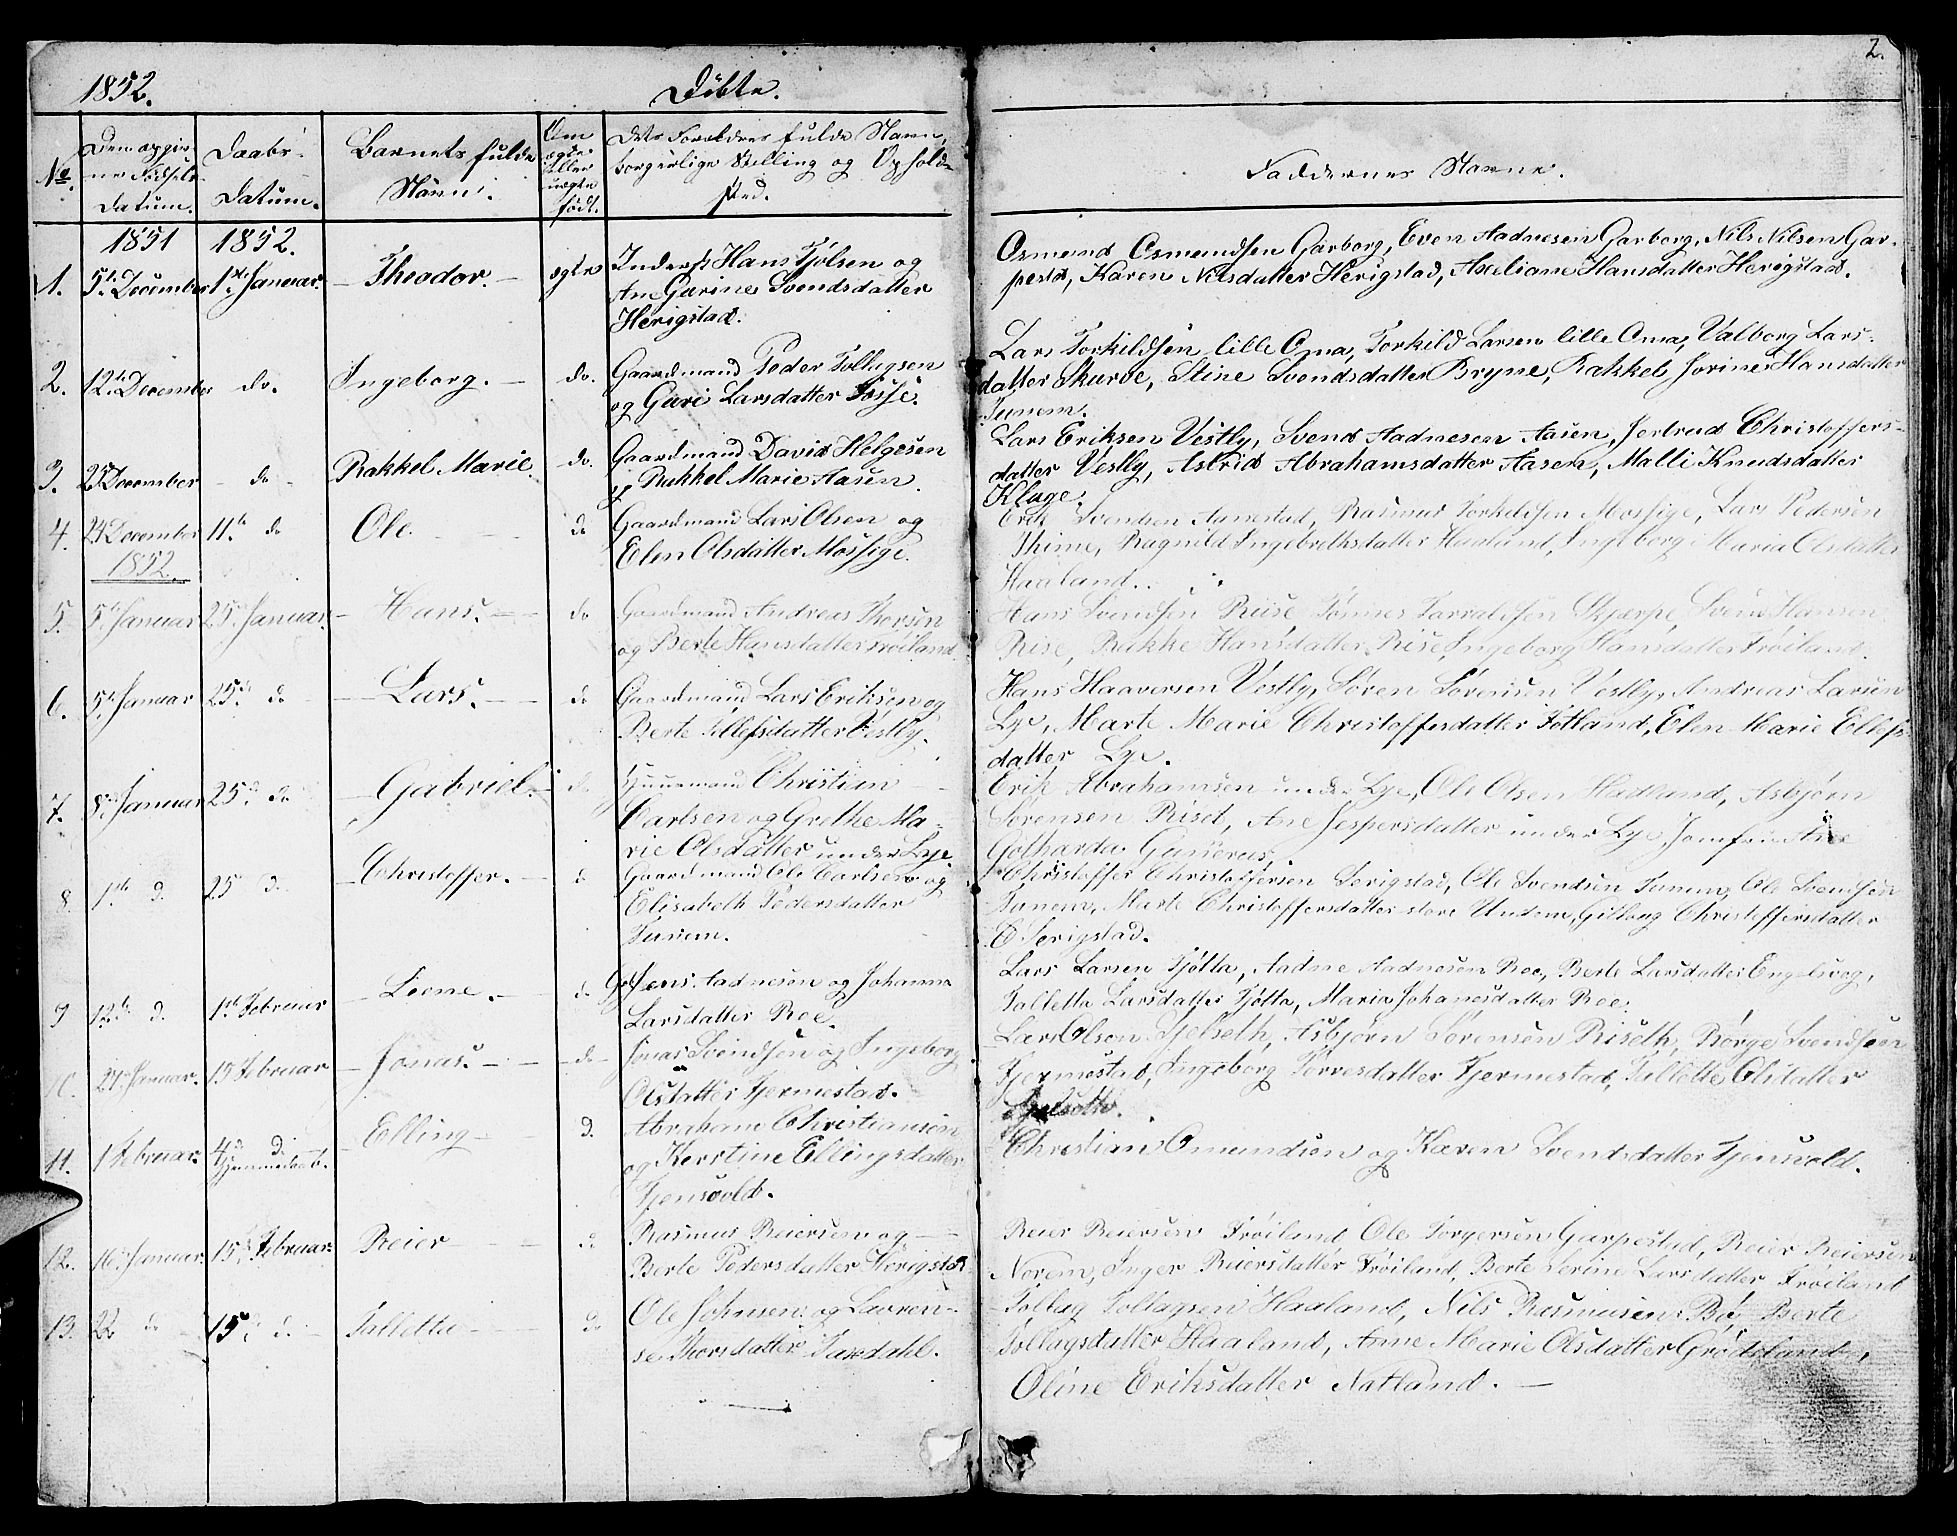 2.
1852. Døbte.
No. Den opgivne Fødsels Datum. Daabs-Datum. Barnets fulde Navn. Om ægte eller uægte født. Dets Forældres fulde Navn, borgerlige Stilling og Opholdssted. Faddernes Navne.
1851 1852.
1. 5te December 1ste Januar. Theodor. ægte Inderst Hans Tjølsen og
Ane Gurine Svendsdatter
Herigstad.
Osmund Osmundsen Garborg, Even Aadnesen Garborg, Nils Nilsen Gar-
pestd, Karen Nilsdatter Herigstad, Axeliane Hansdatter Herigstad.
2. 12te December do. Ingeborg. do. Gaardmand Peder Tollagsen
og Guri Larsdatter Fosse.
Lars Torkildsen lille Oma, Torkild Larsen lille Oma, Valborg Lars-
datter Skurve, Stine Svendsdatter Bryne, Rakkel Jorine Hansdatter
Tunem.
3. 25 December do Rakkel Marie. do. Gaardmand David Helgesen
og Rakkel Marie Aasen.
Lars Eriksen Vestly, Svend Aadnesen Aasen, Jertrud Christoffers-
datter Vestly, Astrid Abrahamsdatter Aasen, Malli Knudsdatter
Kluge.
4. 24 December 11te do Ole. do Gaardmand Lars Olsen og
Elen Olsdatter Mossige.
Erik Svendsen Aanestad, Rasmus Torkildsen Mossige, Lars Pedersen
Thime, Ragnild Ingebretksdatter Haaland, Ingeborg Maria Olsdatter
Haaland.
1852.
5. 5te Januar 25de Januar. Hans. do Gaardmand Andreas Thorsen
og Berte Hansdatter Frøiland
Hans Svendsen Riise, Tønnes Tarraldsen Skjærpe, Svend Hansen
Rise, Rakke Hansdatter Rise, Ingeborg Hansdatter Frøiland.
6. 5te Januar 25de do Lars. do Gaardmand Lars Eriksen og
Berte Ellefsdatter Vestly.
Hans Haaversen Vestly, Søren Sørensen Vestly, Andreas Larsen
Lye, Marte Marie Christoffersdatter Fotland, Elen Marie Ellefs-
datter Lye.
7. 8de Januar 25de do Gabriel. do Huusmand Christian
Carlsen og Grethe Ma-
rie Olsdatter under Lye
Erik Abrahamsen under Lye, Ole Olsen Hadland, Asbjørn
Sørensen Riset, Ane Jespersdatter under Lye, Jomfru Ane
Gotharda Gunnerus.
8. 1ste d. 25 d. Christoffer. d. Gaardmand Ole Carlsen og
Elisabeth Pedersdatter
Tunem.
Christoffer Christoffersen Serigstad, Ole Svendsen Tunem, Ole Svendsen
Tunem, Marte Christoffersdatter store Undem, Gitlaug Christoffersdatter
Serigstad.
9 12te d. 1ste Februar Lene. d. Jens Aadnesen og Johanna
Larsdatter Roe.
Lars Larsen Tjøtta, Aadne Aadnesen Roe, Berte Larsdatter Engelsvog,
Talletta Larsdatter Tjøtta, Maria Johanesdatter Roe.
10. 27 Januar. 15 Februar Jonas. do Jonas Svendsen og Ingeborg
Olsdatter Tjermestad.
Lars Olsen Gjelseth, Asbjørn Sørensen Riseth, Børge Svendsen
Tjermestad, Ingeborg Torresdatter Tjermestad, Tallette Olsdatter
11. 1 Februar. 4de d. Hjemmedaab. Elling d. Abraham Christiansen
og Kerstine Ellingsdatter
Tjensvold.
Christian Omundsen og Karen Svendsdatter Tjensvold.
12. 16 Januar. 15de Februar. Reier d Rasmus Reiersen og
Berte Pedersdatter Herigstd.
Reier Reiersen Frøiland Ole Torgersen Garpestad, Reier Reiersen
Norem, Inger Reiersdatter Frøiland, Berte Serine Larsdatter Frøiland
13. 22 do 15de d. Talletta do Ole Johnsen og Lauren-
se Thorsdatter Taxdahl.
Tollag Tollagsen Haaland, Nils Rasmusen Bø, Berte
Tollagsdatter Haaland, Anne Marie Olsdatter Grødeland,
Oline Eriksdatter Natland.